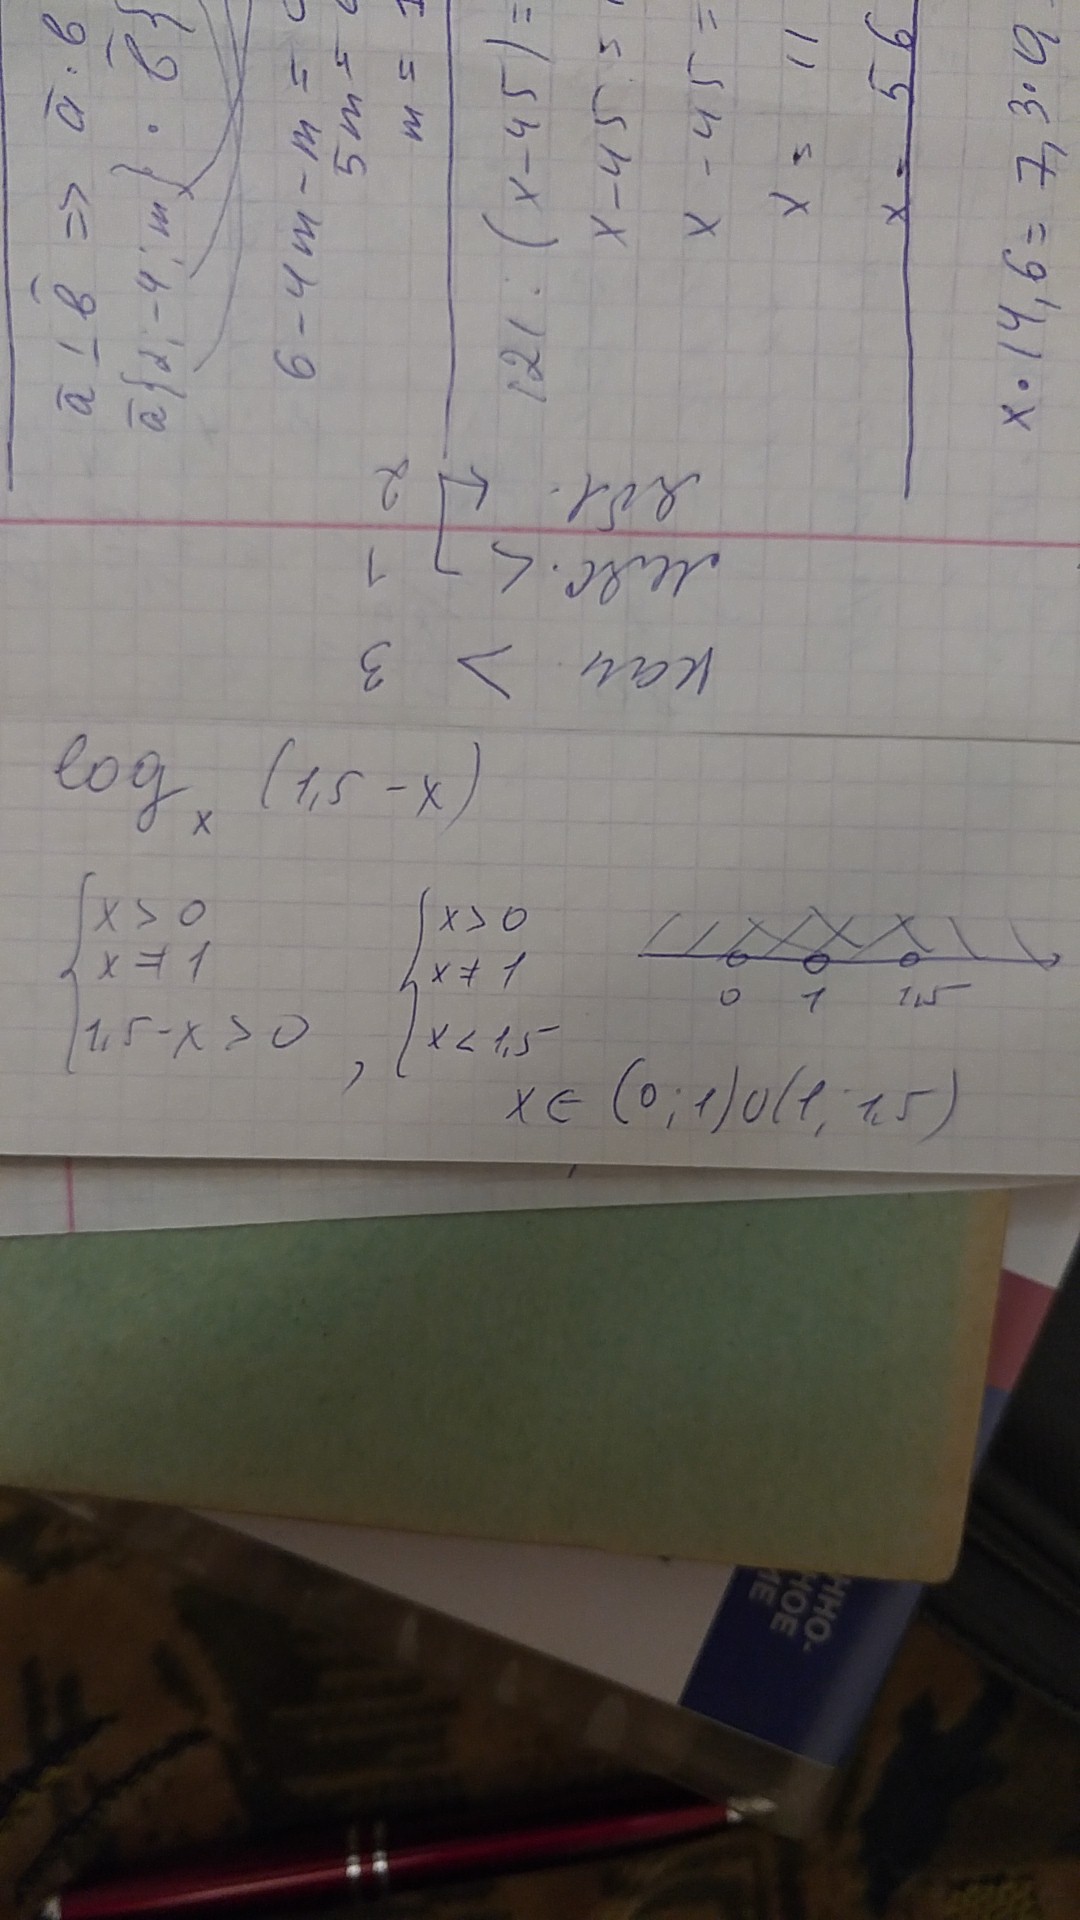 ā ⊥ b̄ => ā · b
ā{2; -4; m} · b̄{
6 - 4m - m =
5m =
m =
121 : (x - 45) =
x - 45 =
x - 45 =
x = 11
x = 56
x · 14,6 = 7,3 · 9
2
1
кан > 3
log x (1,5 - x)
{ x > 0
x ≠ 1
1,5 - x > 0 ,
{ x > 0
x ≠ 1
x < 1,5
0 1 1,5
x ∈ (0; 1) ∪ (1; 1,5)
ННО-
НОЕ
ИЕ